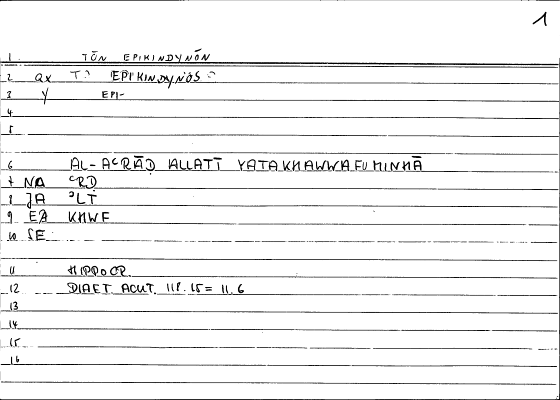 1
1 TŌN EPIKINDYNŌN
2 ax EPIKINDYNOS
3 y EPI-
4
5
6 AL-AᶜRĀḌ ALLATĪ YATAKHAWWAFU MINHĀ
7 NA ᶜRḌ
8 JA ᵓLT
9 EA KHWF
10 SE
11 HIPPOCR.
12 DIAET. ACUT. 118.15 = 11.6
13
14
15
16